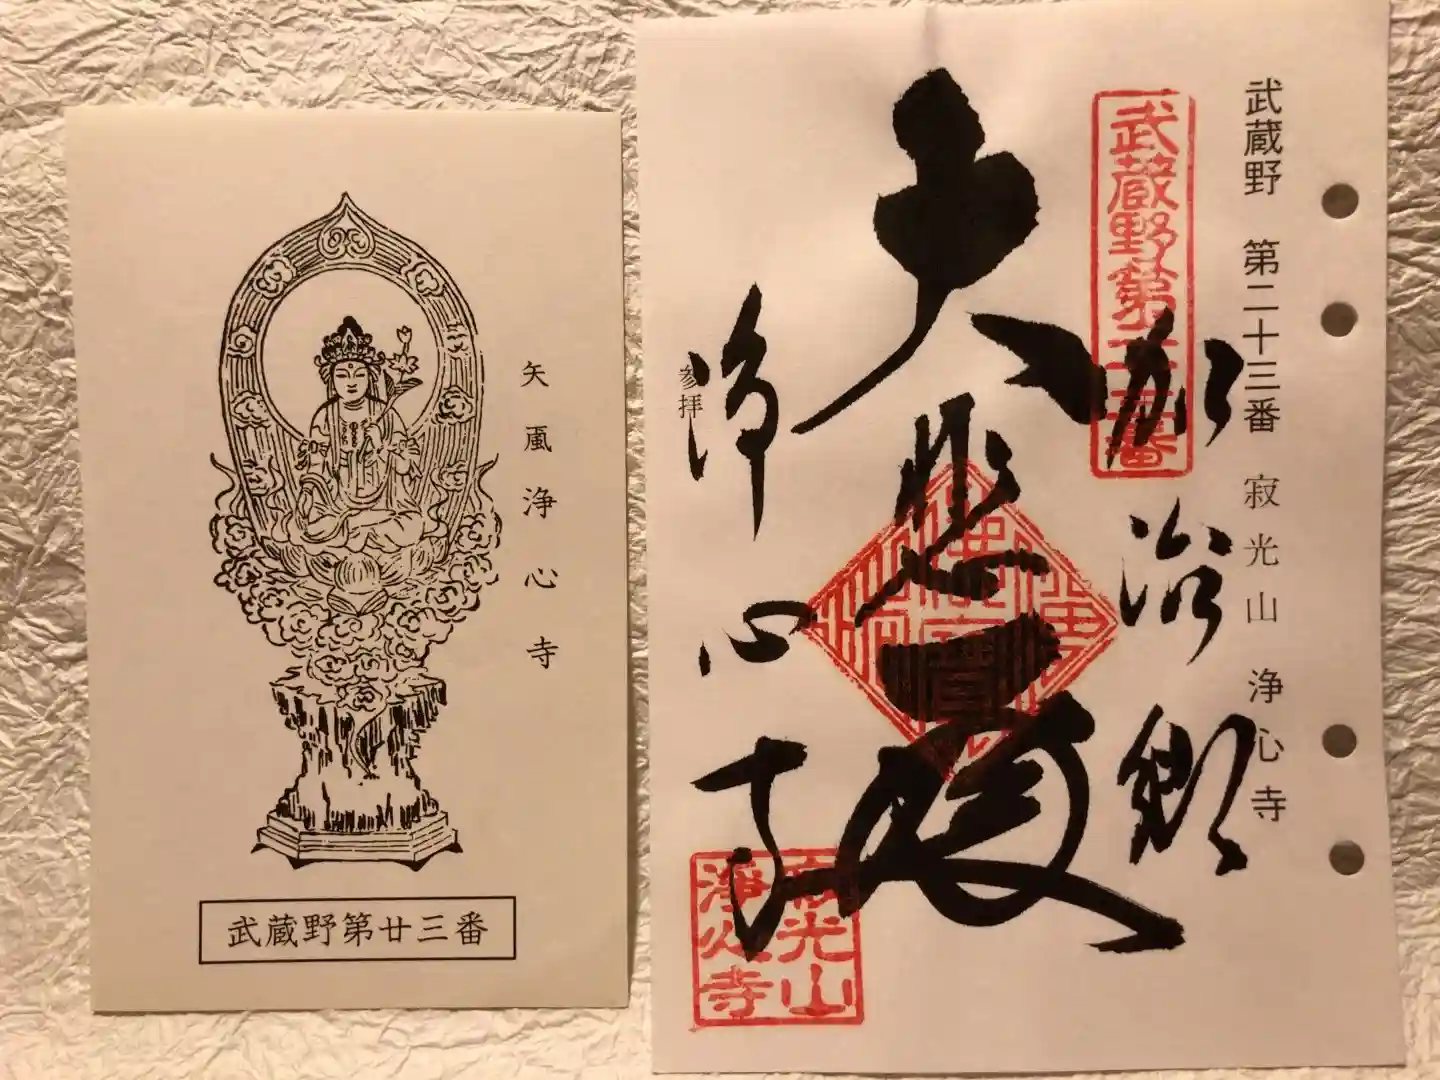 矢颪浄心寺
武蔵野第廿三番
武蔵野 第二十三番 寂光山 浄心寺
武蔵野第二十三番
加治郷
大悲殿
参拝
浄心寺
寂光山
浄心寺